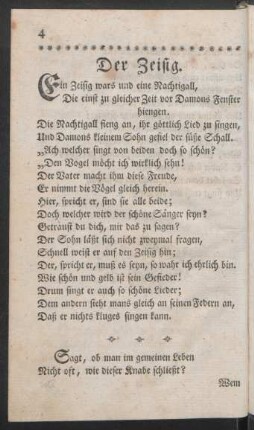 4
Der Zeisig.
Ein Zeisig wars und eine Nachtigall,
Die einst zu gleicher Zeit vor Damons Fenster
hiengen.
Die Nachtigall fieng an, ihr göttlich Lied zu singen,
Und Damons kleinem Sohn gefiel der süße Schall.
„Ach welcher singt von beiden doch so schön?
„Den Vogel möcht ich wirklich sehn!
Der Vater macht ihm diese Freude,
Er nimmt die Vögel gleich herein.
Hier, spricht er, sind sie alle beide;
Doch welcher wird der schöne Sänger seyn?
Getraust du dich, mir das zu sagen?
Der Sohn läßt sich nicht zweymal fragen,
Schnell weist er auf den Zeisig hin;
Der, spricht er, muß es seyn, so wahr ich ehrlich bin.
Wie schön und gelb ist sein Gefieder!
Drum singt er auch so schöne Lieder;
Dem andern sieht mans gleich an seinen Federn an,
Daß er nichts kluges singen kann.
Sagt, ob man im gemeinen Leben
Nicht oft, wie dieser Knabe schließt?
Wem